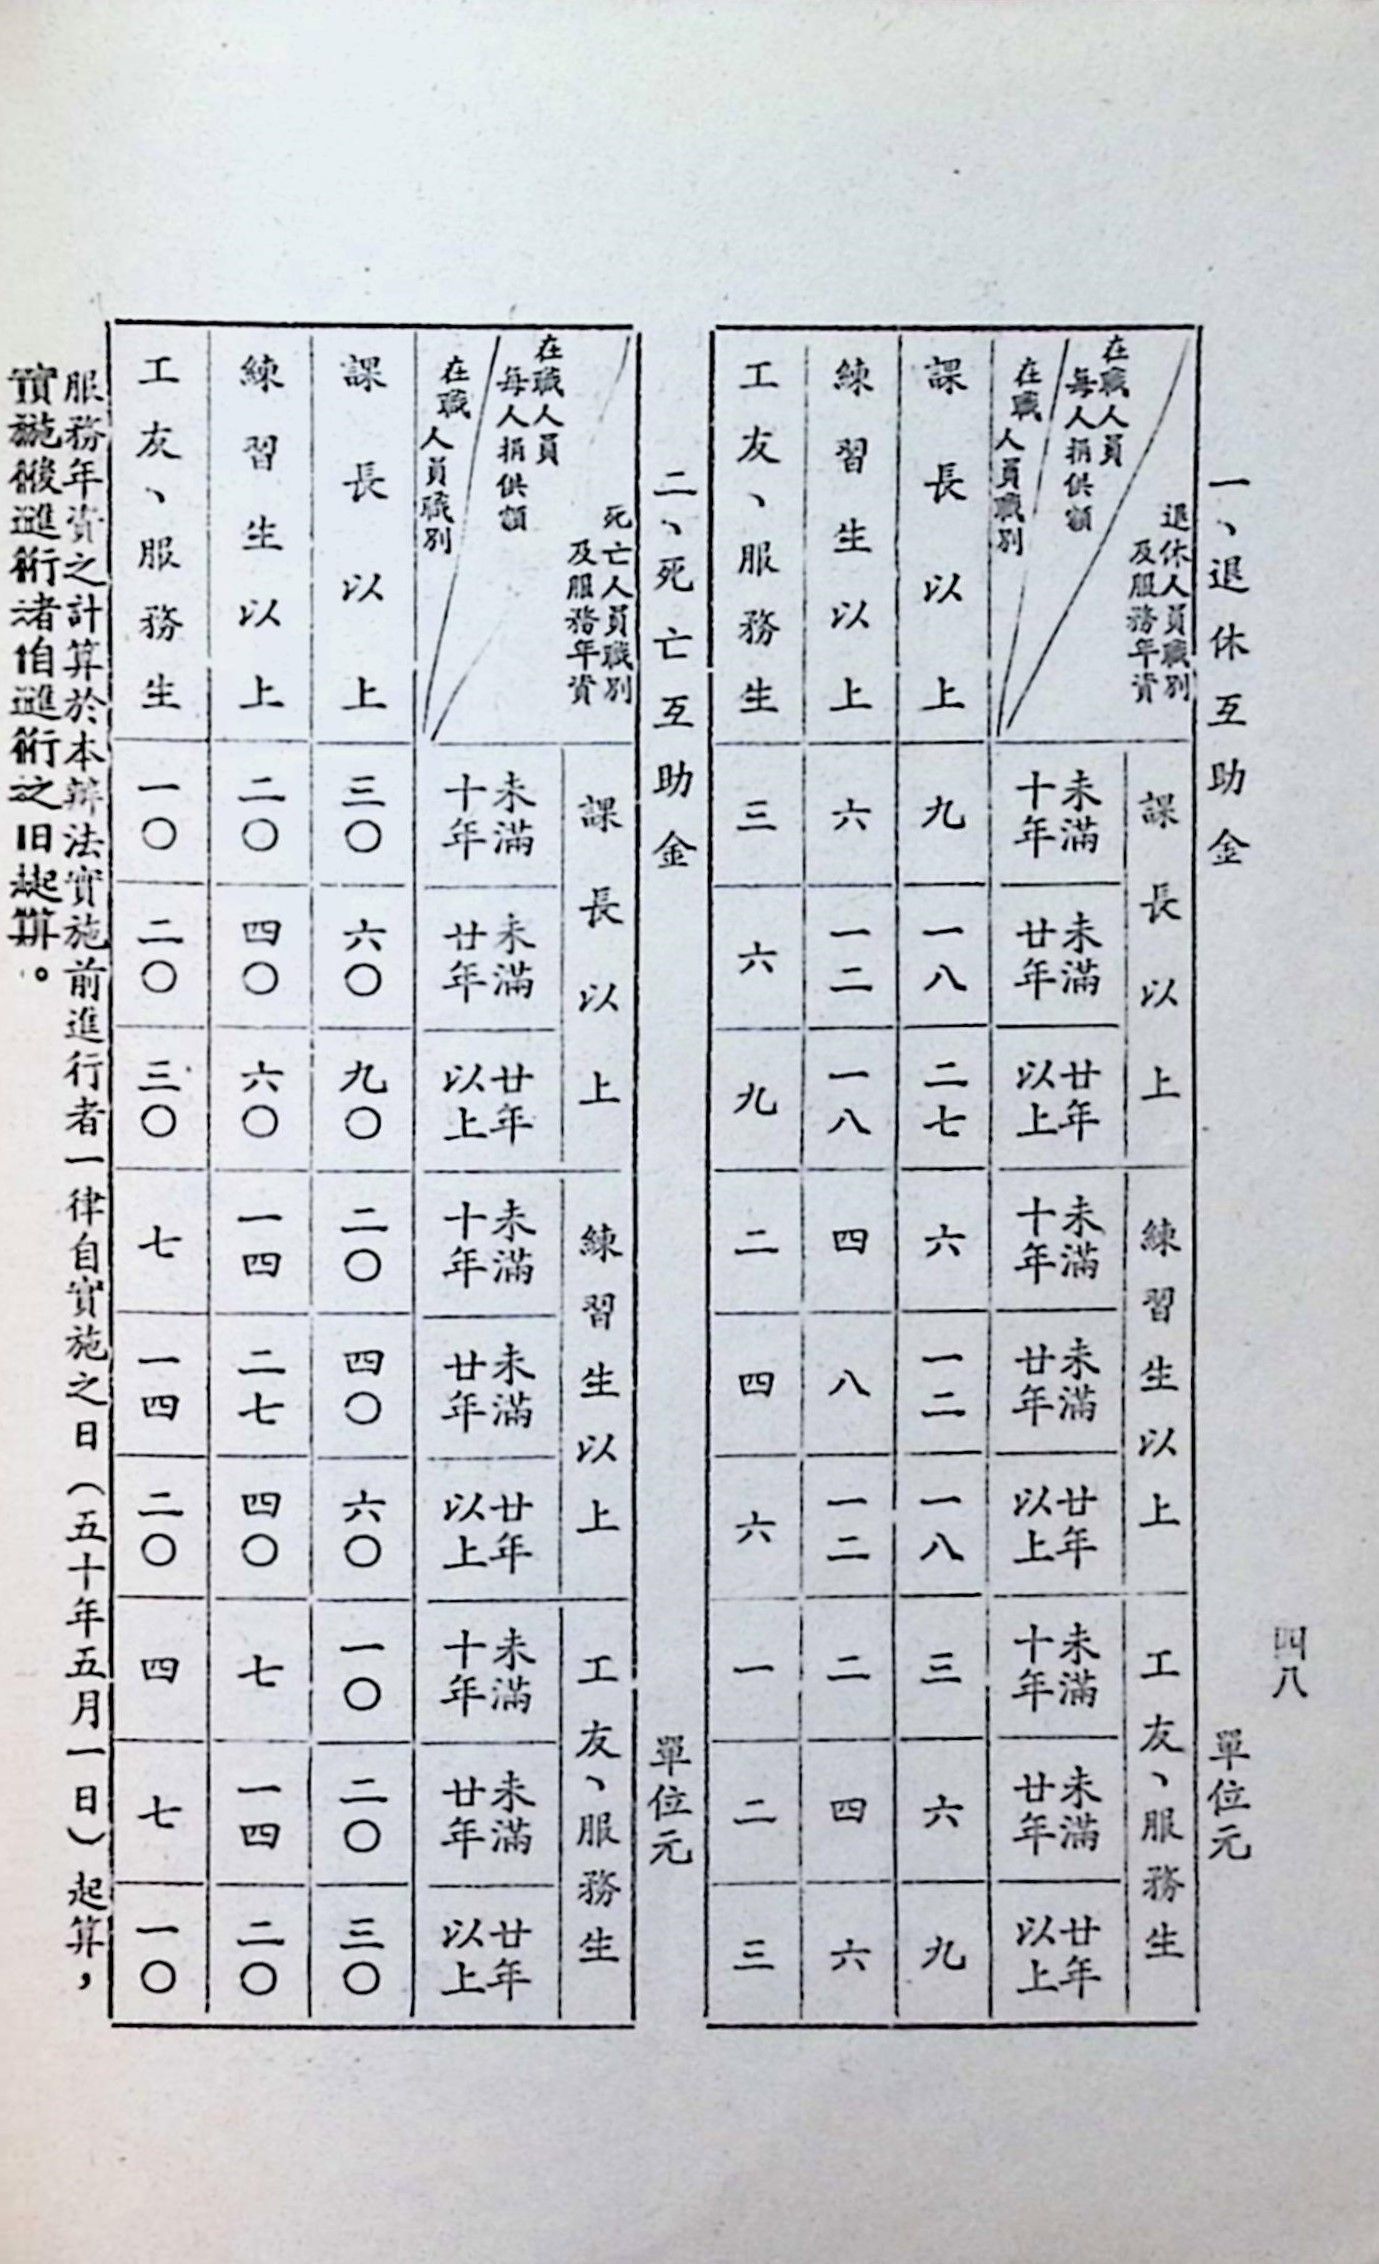 四八
一、退休互助金 單位元
退休人員職別
及服務年資
在職人員
每人捐供額
在職人員職別
課長以上 練習生以上 工友、服務生
未滿十年 未滿廿年 廿年以上 未滿十年 未滿廿年 廿年以上 未滿十年 未滿廿年 廿年以上
課長以上 九 一八 二七 六 一二 一八 三 六 九
練習生以上 六 一二 一八 四 八 一二 二 四 六
工友、服務生 三 六 九 二 四 六 一 二 三
二、死亡互助金 單位元
死亡人員職別
及服務年資
在職人員
每人捐供額
在職人員職別
課長以上 練習生以上 工友、服務生
未滿十年 未滿廿年 廿年以上 未滿十年 未滿廿年 廿年以上 未滿十年 未滿廿年 廿年以上
課長以上 三〇 六〇 九〇 二〇 四〇 六〇 一〇 二〇 三〇
練習生以上 二〇 四〇 六〇 一四 二七 四〇 七 一四 二〇
工友、服務生 一〇 二〇 三〇 七 一四 二〇 四 七 一〇
服務年資之計算於本辦法實施前進行者一律自實施之日（五十年五月一日）起算，
實施後進行者自進行之日起算。